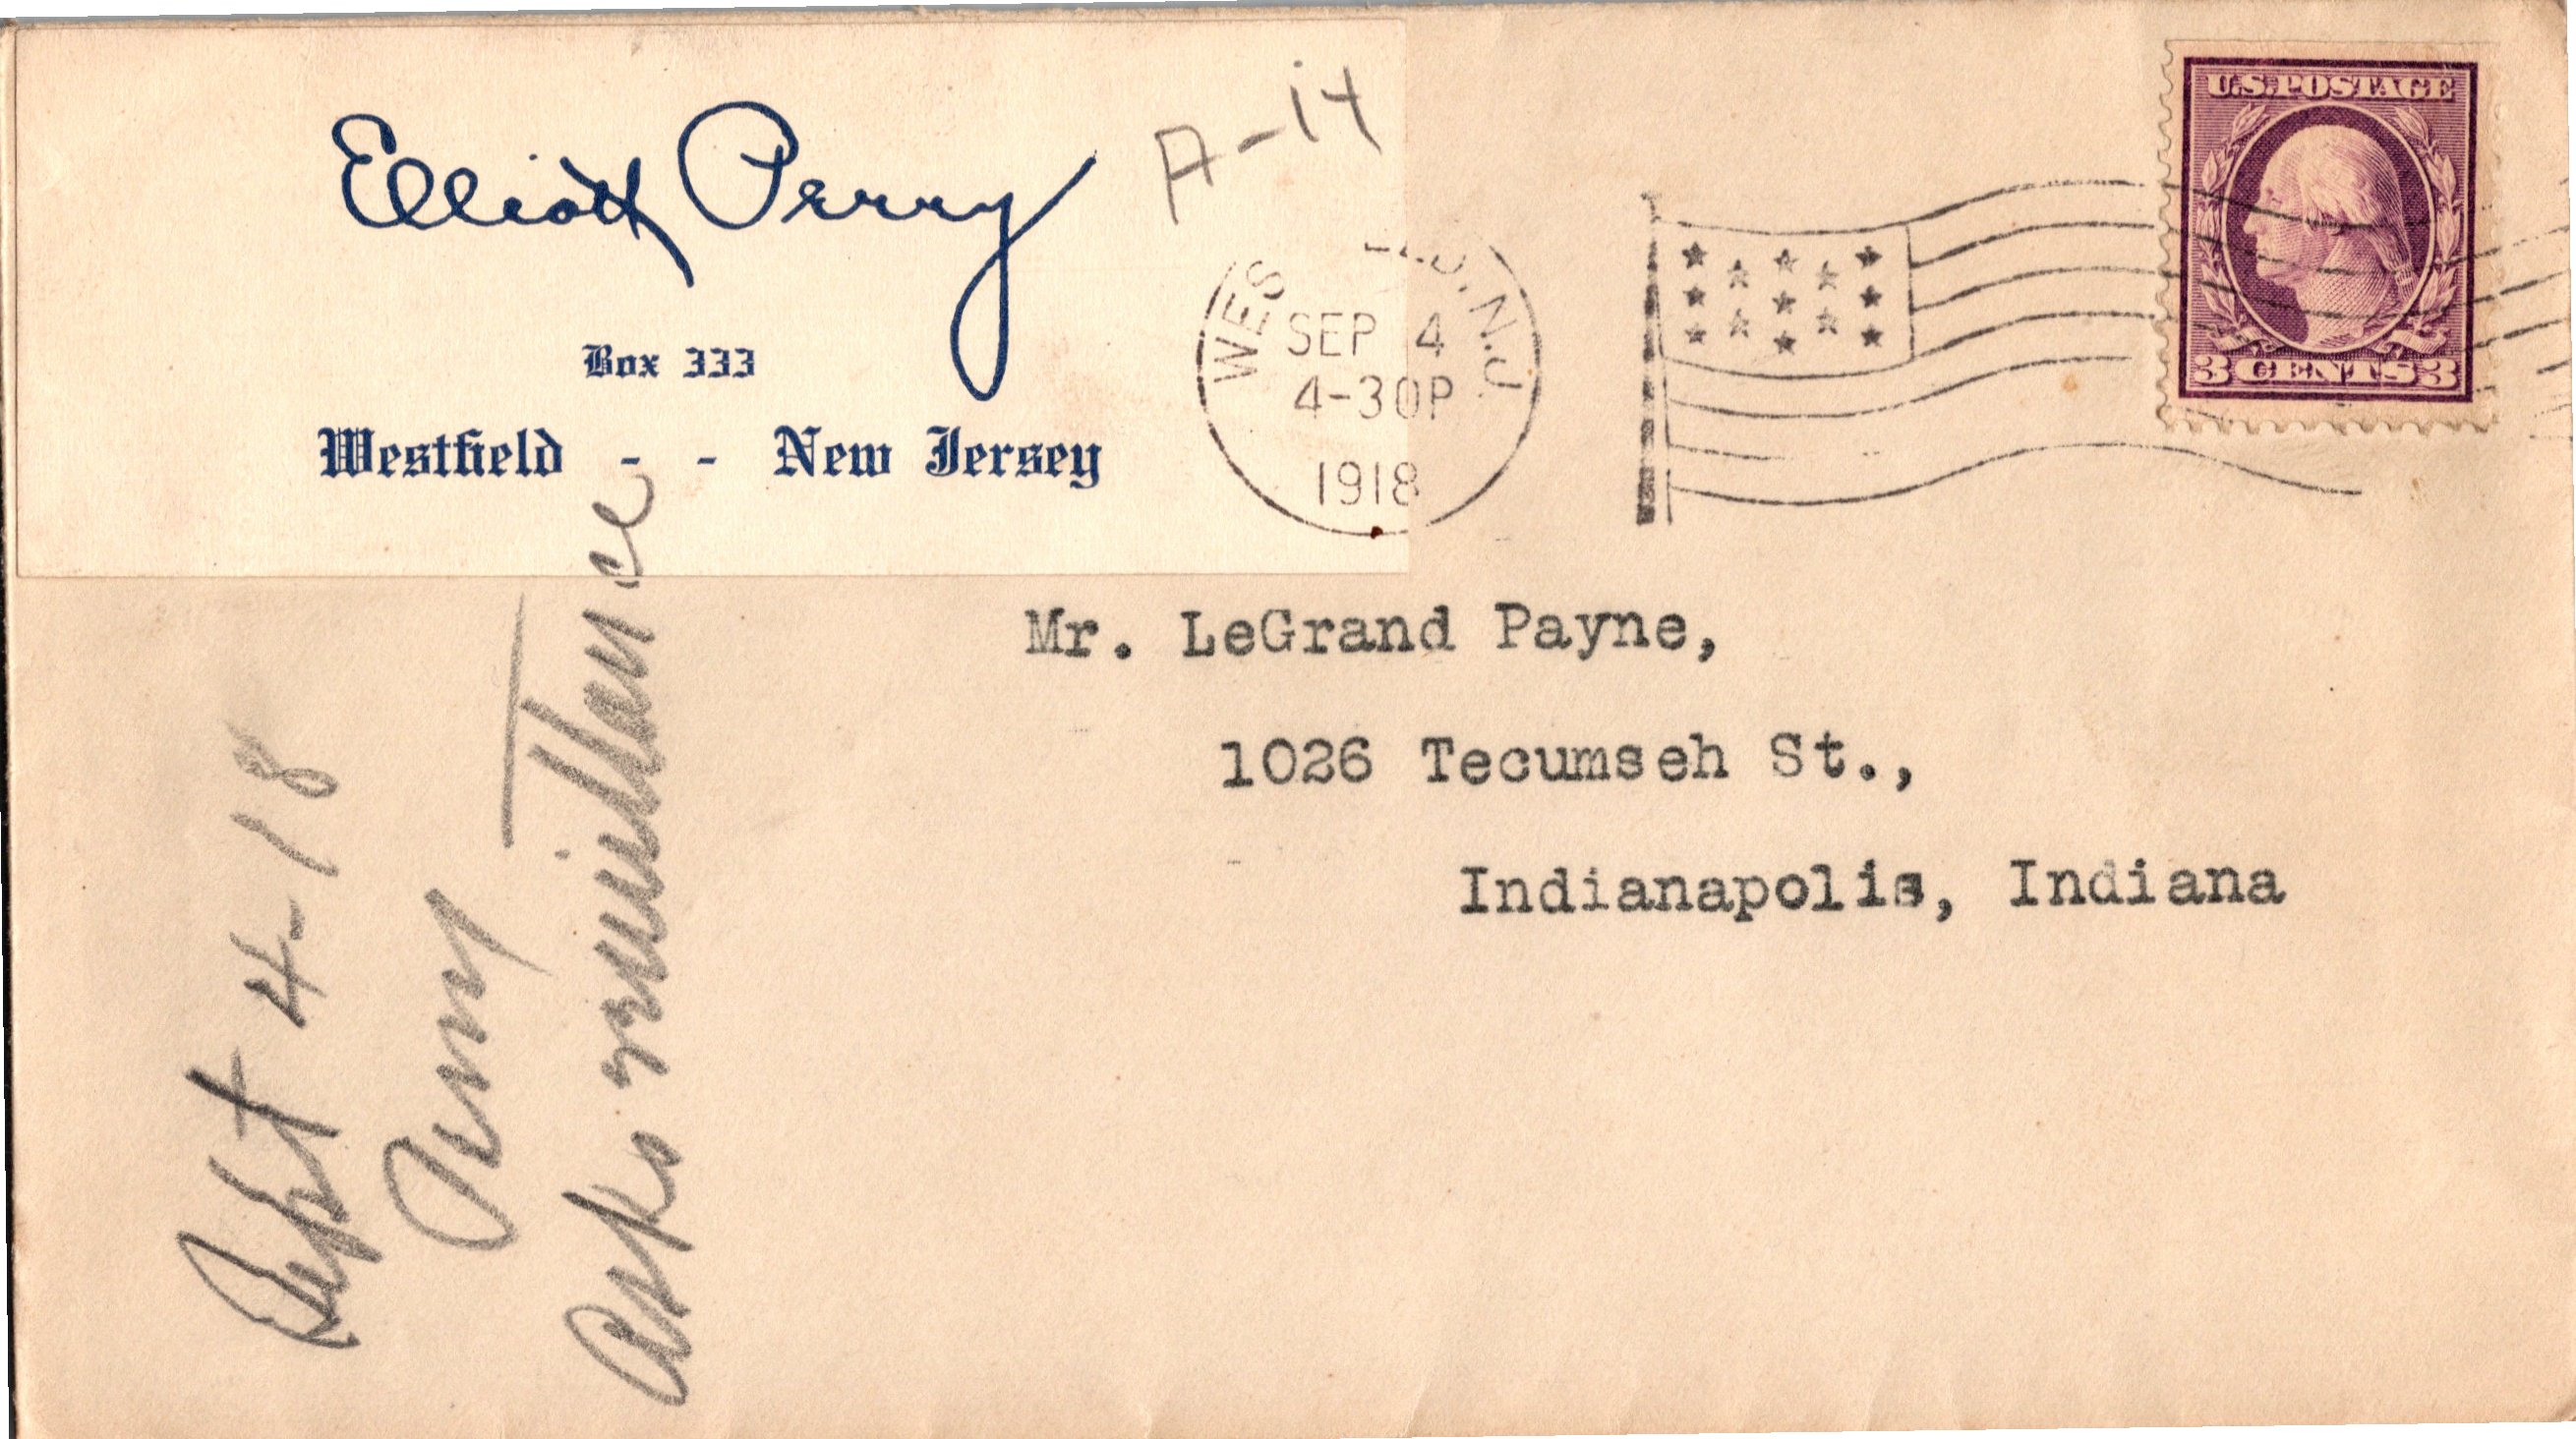 Elliott Perry
Box 333
Westfield - - New Jersey
A-14
WES LD. N.J.
SEP 4
4-30P
1918
U.S. POSTAGE
3 CENTS 3
Mr. LeGrand Payne,
1026 Tecumseh St.,
Indianapolis, Indiana
Sept 4-18
Perry
Asks remittance